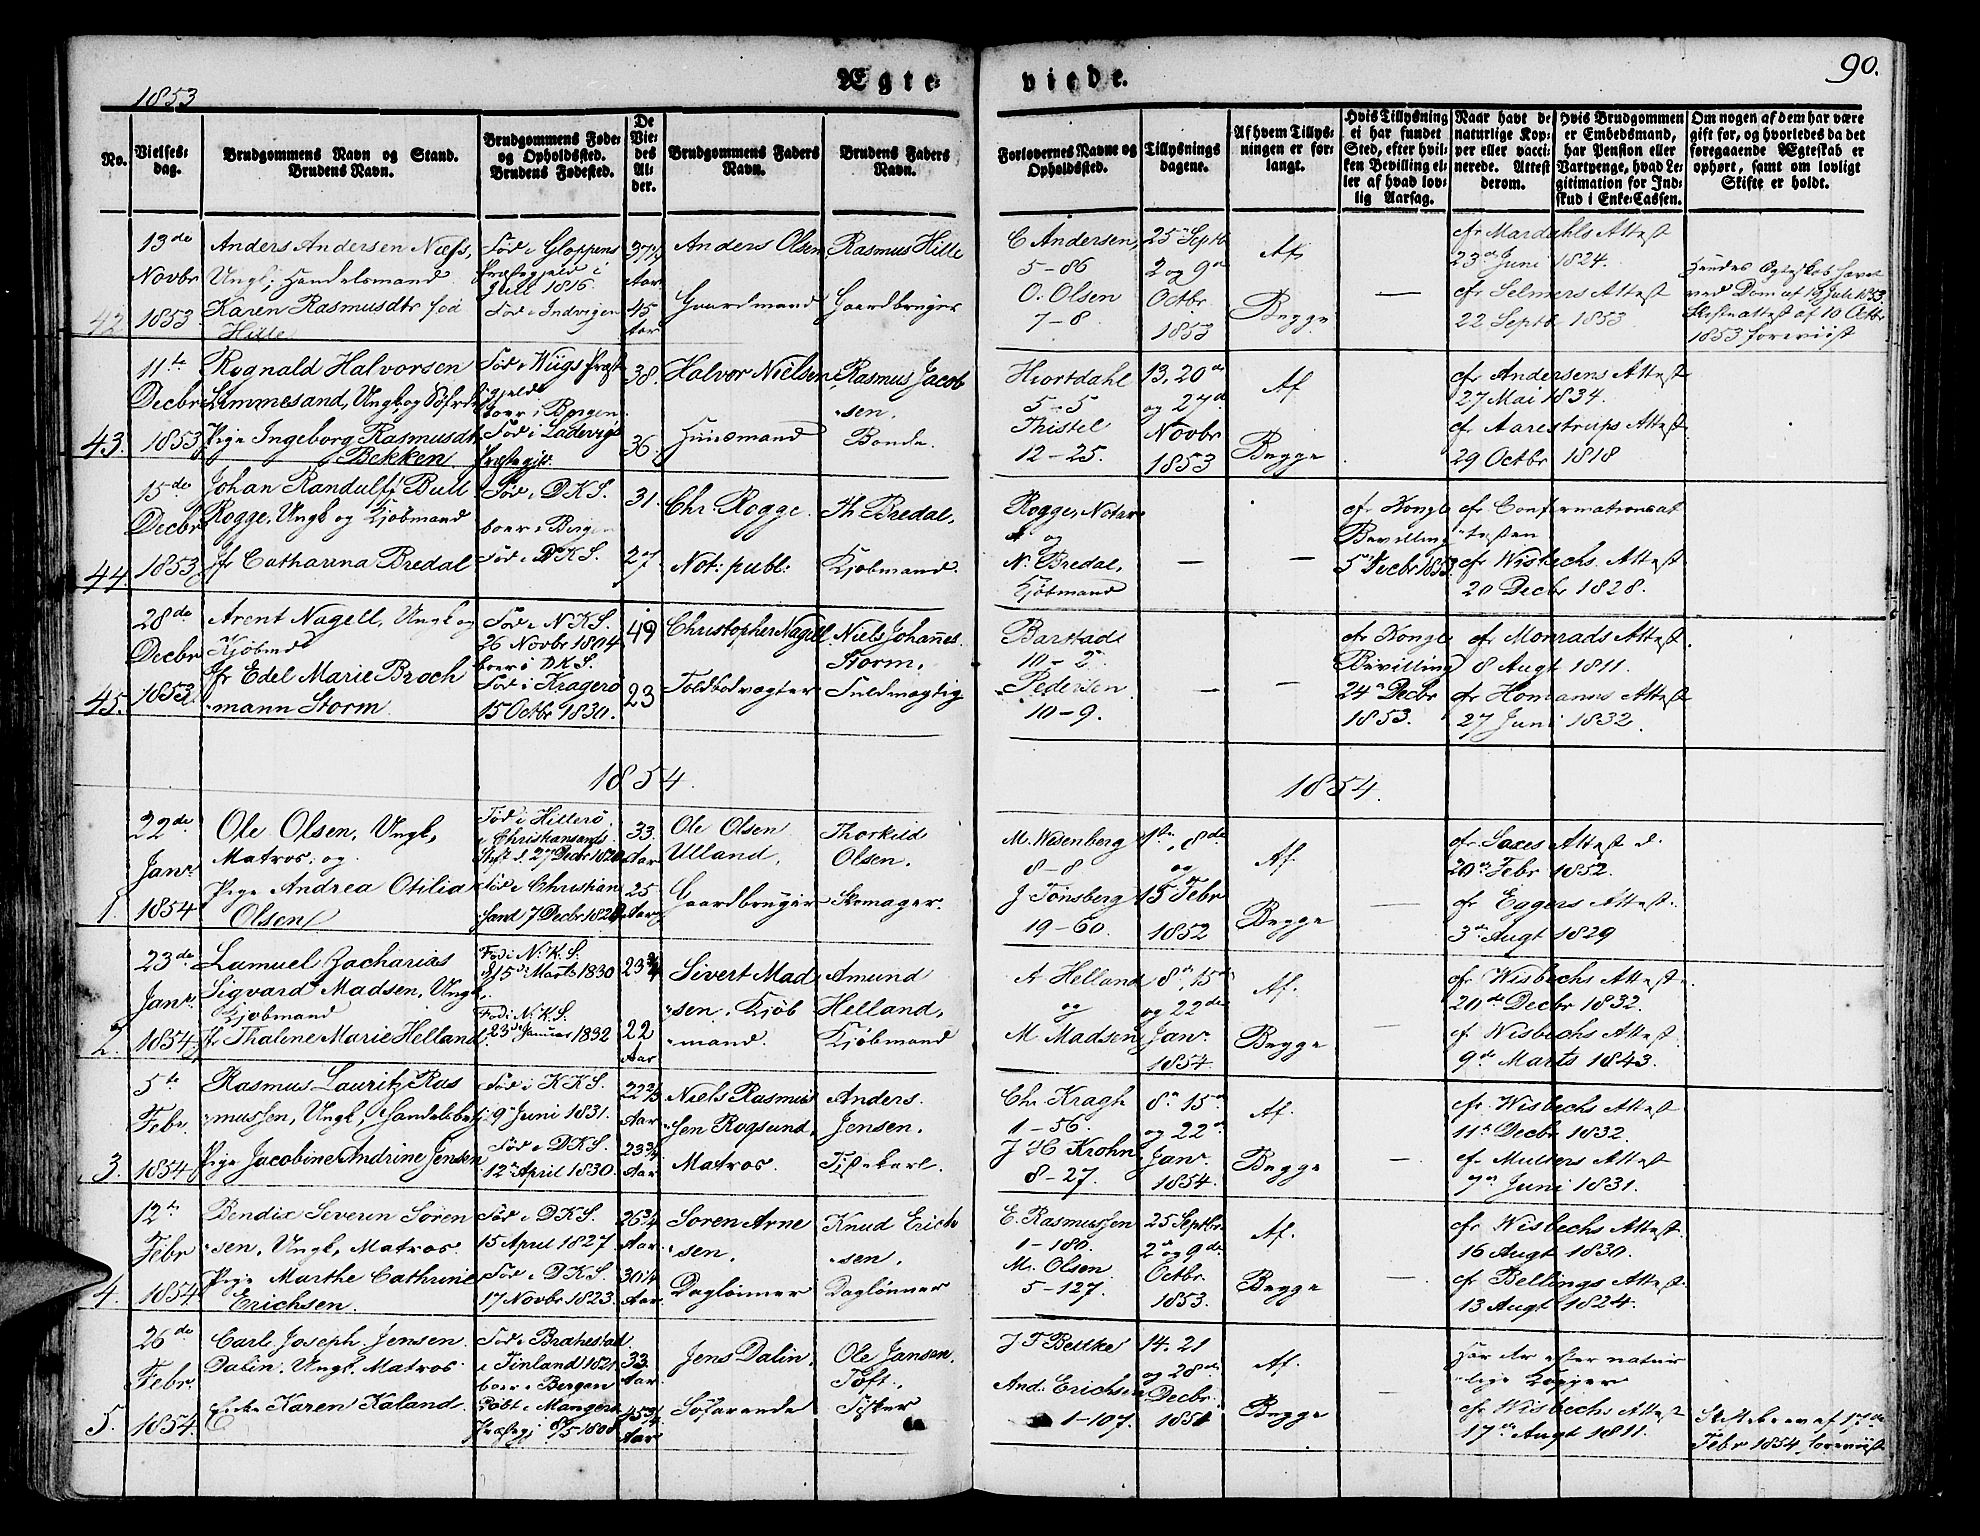 1853
Ægte
viede.
90.
No.
Vielses-
dag.
Brudgommens Navn og Stand.
Brudens Navn.
Brudgommens Føde-
og Opholdssted.
Brudens Fødested.
De
Vie-
des
Al-
der.
Brudgommens Faders
Navn.
Brudens Faders
Navn.
Forlovernes Navne og
Opholdssted.
Tillysnings
dagene.
Af hvem Tillys-
ningen er for-
langt.
Hvis Tillysning
ei har fundet
Sted, efter hvil-
ken Bevilling el-
ler af hvad lov-
lig Aarsag.
Naar havt de
naturlige Kop-
per eller vacci-
nerede. Attest
derom.
Hvis Brudgommen
er Embedsmand,
har Pension eller
Vartpenge, hvad Le-
gitimation for Ind-
skud i Enke-Cassen.
Om nogen af dem har være
gift for, og hvorledes da det
foregaaende Ægteskab er
ophørt, samt om lovligt
Skifte er holdt.
42.
13de
Novbr
1853
Anders Andersen Næss,
Ungk; Handelsmand
Karen Rasmusdtr fød
Hille
Fød i Gloppens
Præstegjeld i
Juli 1816
Fød i Indvigen
Aar
45
Aar
Anders Olsen
Gaardmand
Rasmus Hille
Gaardbruger
C Andersen,
5-86
O. Olsen
7-8.
25 Septb
2 og 9de
Octbr
1853
Af
Begge
cfr Mardahls Attest
23de Juni 1824.
cfr Selmers Attest
22 Septb 1853
Hendes Ægteskab hævet
ved Dom af 19 Juli 1853.
Skifteattest af 10 Octbr
1853 foreviist
43.
11te
Decbr
1853
Rognald Halvorsen
Lemmesand, Ungk og
Pige Ingeborg Rasmusdt
Bekken
Fød i Wiigs Præst
gjeld
boer i Bergen
Fød i Ladevigs
Præstegjd.
38.
36.
Halvor Nielsen
Huusmand
Rasmus Jacob
sen.
Bonde.
Hiortdahl
5-5
Thistel
12-25.
13, 20de
og 27d.
Novbr
1853
Af
Begge
cfr Andersens Attest
27 Mai 1834.
cfr Aarestrups Attest
29 Octbr 1818
44.
15de
Decbr
1853
Johan Randulff Bull
Rogge, Ungk og Kjøbmand
Jfr Catharina Bredal
Fød i D.K.S.
boer i Bergen
Fød i D.K.S.
31.
27.
Chr Rogge.
Not: publ:
Th Bredal,
Kjøbmand.
Rogge, Notar
og
N. Bredal,
Kjøbmand
cfr Kongl
Bevilling
5 Decbr 1853.
cfr Confirmationsat
testen
cfr Wisbechs Attest
20 Decbr 1828.
45.
28de
Decbr
1853.
Arent Nagell, Ungk og
Kjøbmd
Jfr Edel Marie Broch
mann Storm
Fød i N.K.S.
26 Novbr 1804.
boer i D.K.S.
Fød i Kragerø
15 Octbr 1830.
49
23
Christopher Nagell
Niels Johannes
Storm,
Fuldmægtig
Barstads
Pedersen
10-9.
cfr Kongl
Bevilling
24de Decbr
1853.
cfr Monrads Attest
8 Augt 1811.
cfr Homanns Attest
27 Juni 1832.
1854.
1854.
1.
22de
Janr
1854
Ole Olsen, Ungk,
Matros, og
Pige Andrea Otilia
Olsen
Fød i Hitterø
i Christiansands
Stift d. 27 Decbr 1820
Fød i Christian
sand 7 Decbr
33.
Aar
25
Aar
Ole Olsen
Ulland,
Gaardbruger
Thorkild
Olsen.
Skomager.
M. Wesenberg
8-8
J Tønsberg
19-60.
1te, 8de
og
15 Febr
1852
Af.
Begge
cfr Saxes Attest d.
20de Febr 1852.
cfr Eggers Attest.
3de Augt 1829
2.
23de
Janr.
1854
Samuel Zacharias
Sigvard Madsen, Ungk
Kjøbmand
Jfr Thaline Marie Helland
Fød i N.K.S.
d 15de Marts 1830
Fød i N.K.S.
23de Januar 1832
23 3/4
22
Aar
Sivert Mad
sen, Kjøb
mand.
Amund
Helland,
Kjøbmand
A Helland
og
M Madsen
8de, 15de
og 22de
Janr.
1854.
Af.
Begge
cfr Wisbechs Attest.
20de Decbr 1832.
cfr Wisbechs Attest.
9de Marts 1843.
3.
5te
Febr.
1854
Rasmus Lauritz Ras
mussen, Ungk, Handelsbet
Pige Jacobine Andrine Jensen
Fød i K.K.S.
9de Juni 1831.
Fød i D.K.S.
12te April 1830.
Aar
23 3/4
Aar
Niels Rasmus
sen Rogsund,
Matros.
Anders
Jensen.
Chr. Kragh
1-56.
J H Krohn
8-27.
8de 15de
og 22de
Janr.
1854.
Af.
Begge
cfr. Wisbechs Attest
11te Decbr 1832.
cfr Multers Attest
7de Juni 1831.
4.
12te
Febr
1854
Bendix Severin Søren
sen, Ungk, Matros.
Pige Marthe Cathrine
Erichsen.
Fød i D.K.S.
15 April 1827.
Fød i D.K.S.
17 Novbr 1823.
26 3/4
Aar.
30 1/4
Aar.
Søren Arne
sen.
Daglønner
Knud Erich
sen.
Daglønner
E. Rasmussen
1-180.
M. Olsen
5-127.
25 Septbr
2de og 9de
Octbr.
1853.
Af.
Begge
cfr Wisbechs Attest.
16 Augt 1830.
cfr Bellings Attest.
13 Augt 1824.
5.
26de
Febr.
1854.
Carl Joseph Jensen
Dalin, Ungk. Matros
Enke Karen Kaland.
Fød i Brahestad
i Finland 1821
boer i Bergen
Døbt i Mangers
Præstegj.
33.
Aar.
45 3/4
Aar
Jens Dalin,
Søfarende
Ole Jansen.
Toft.
Fisker
J F Bettke
And. Erichsen
1-107.
14. 21
og 28de
Decbr.
1851
Af.
Begge
Har Ar efter natur
lige Kopper
cfr Wisbechs Attest
17de Augt 1811.
Skiftebrev af 17de
Febr 1854 foreviist